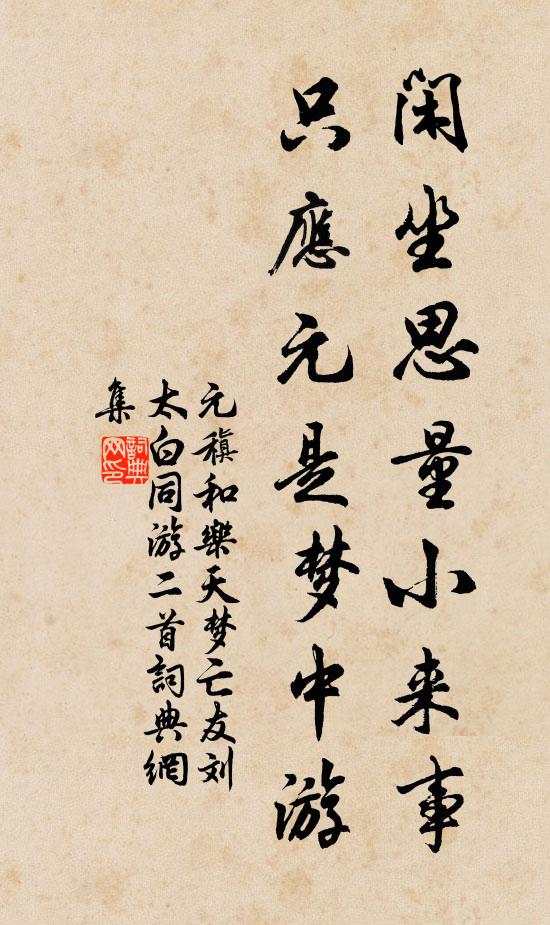 闲坐思量小来事
只應元是梦中游
元稹和樂天梦亡友刘
太白同游二首詞典網
集
詞典網印